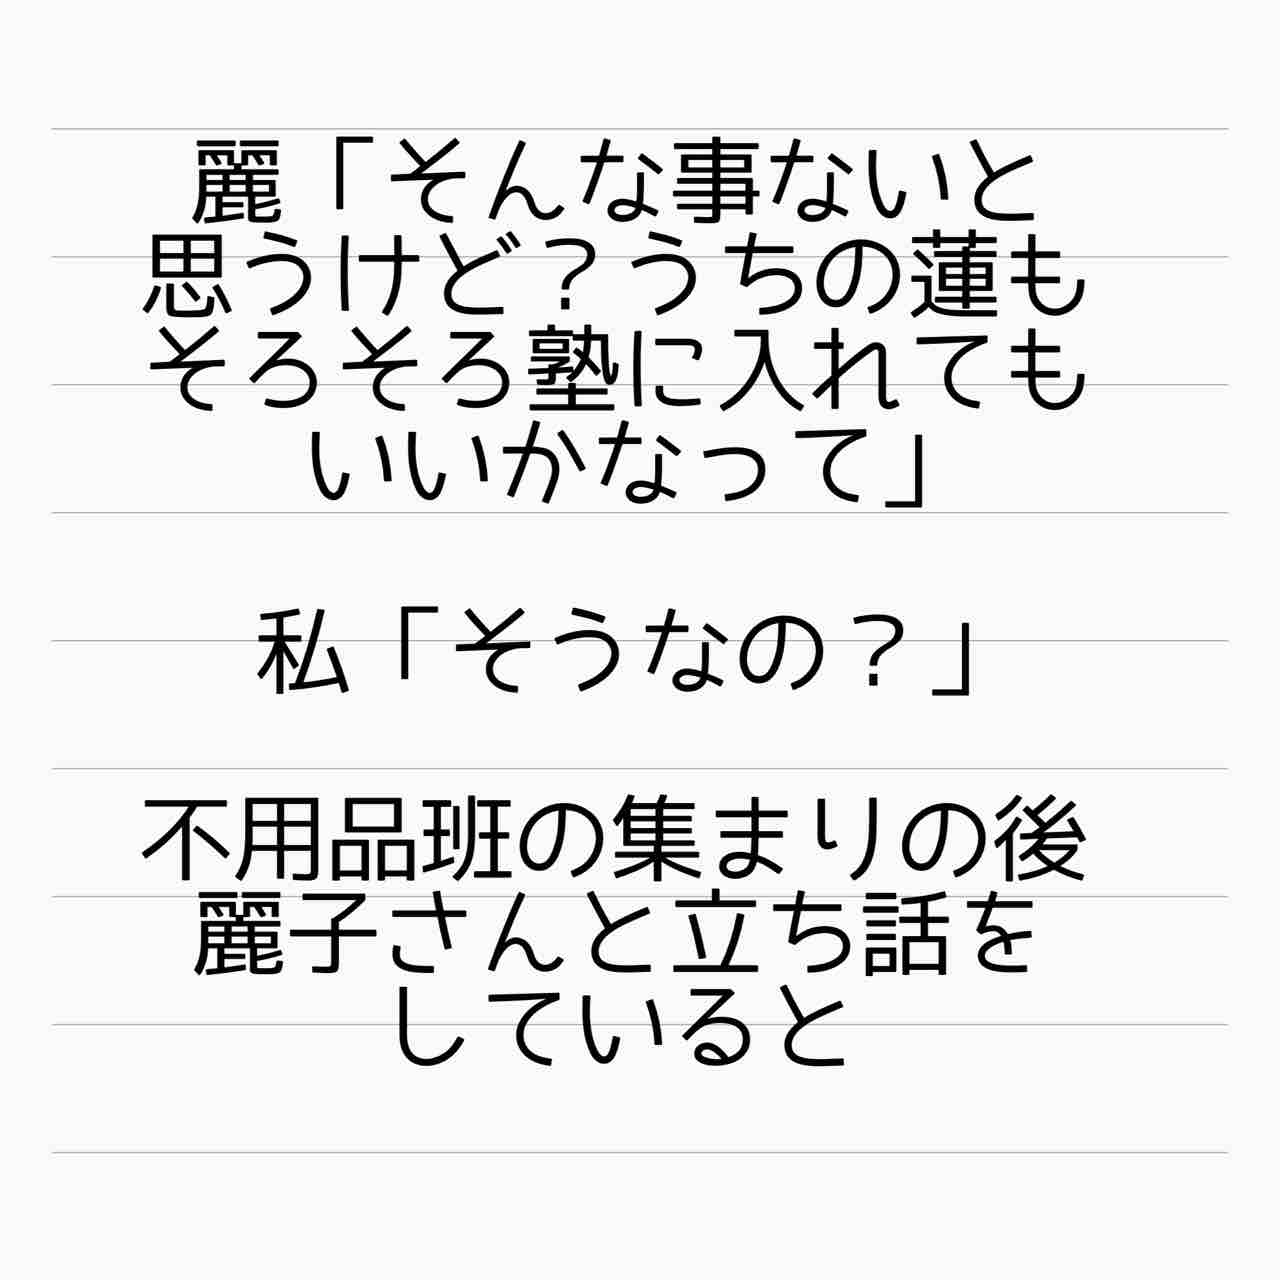 麗「そんな事ないと
思うけど？うちの蓮も
そろそろ塾に入れても
いいかなって」
私「そうなの？」
不用品班の集まりの後
麗子さんと立ち話を
していると